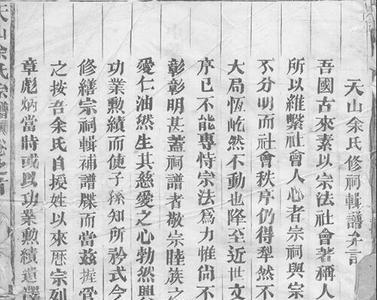 天山余氏修祠輯譜弁言
吾國古來素以宗法社會著稱人
所以維繫社會人心者宗祠與宗
不分明而社會秩序仍得犁然不
大局恆屹然不動也降至近世文
序已不能專恃宗法為力惟尙不
彰彰明甚蓋祠譜者敬宗睦族之
愛仁油然生其慈愛之心勃然興
功業勳績而使子孫知所矜式今
修繕宗祠輯補譜牒而當茲握管
之按吾余氏自授姓以來歷宗列
章彪炳當時或以功業勳績遺澤
天山余氏宗譜